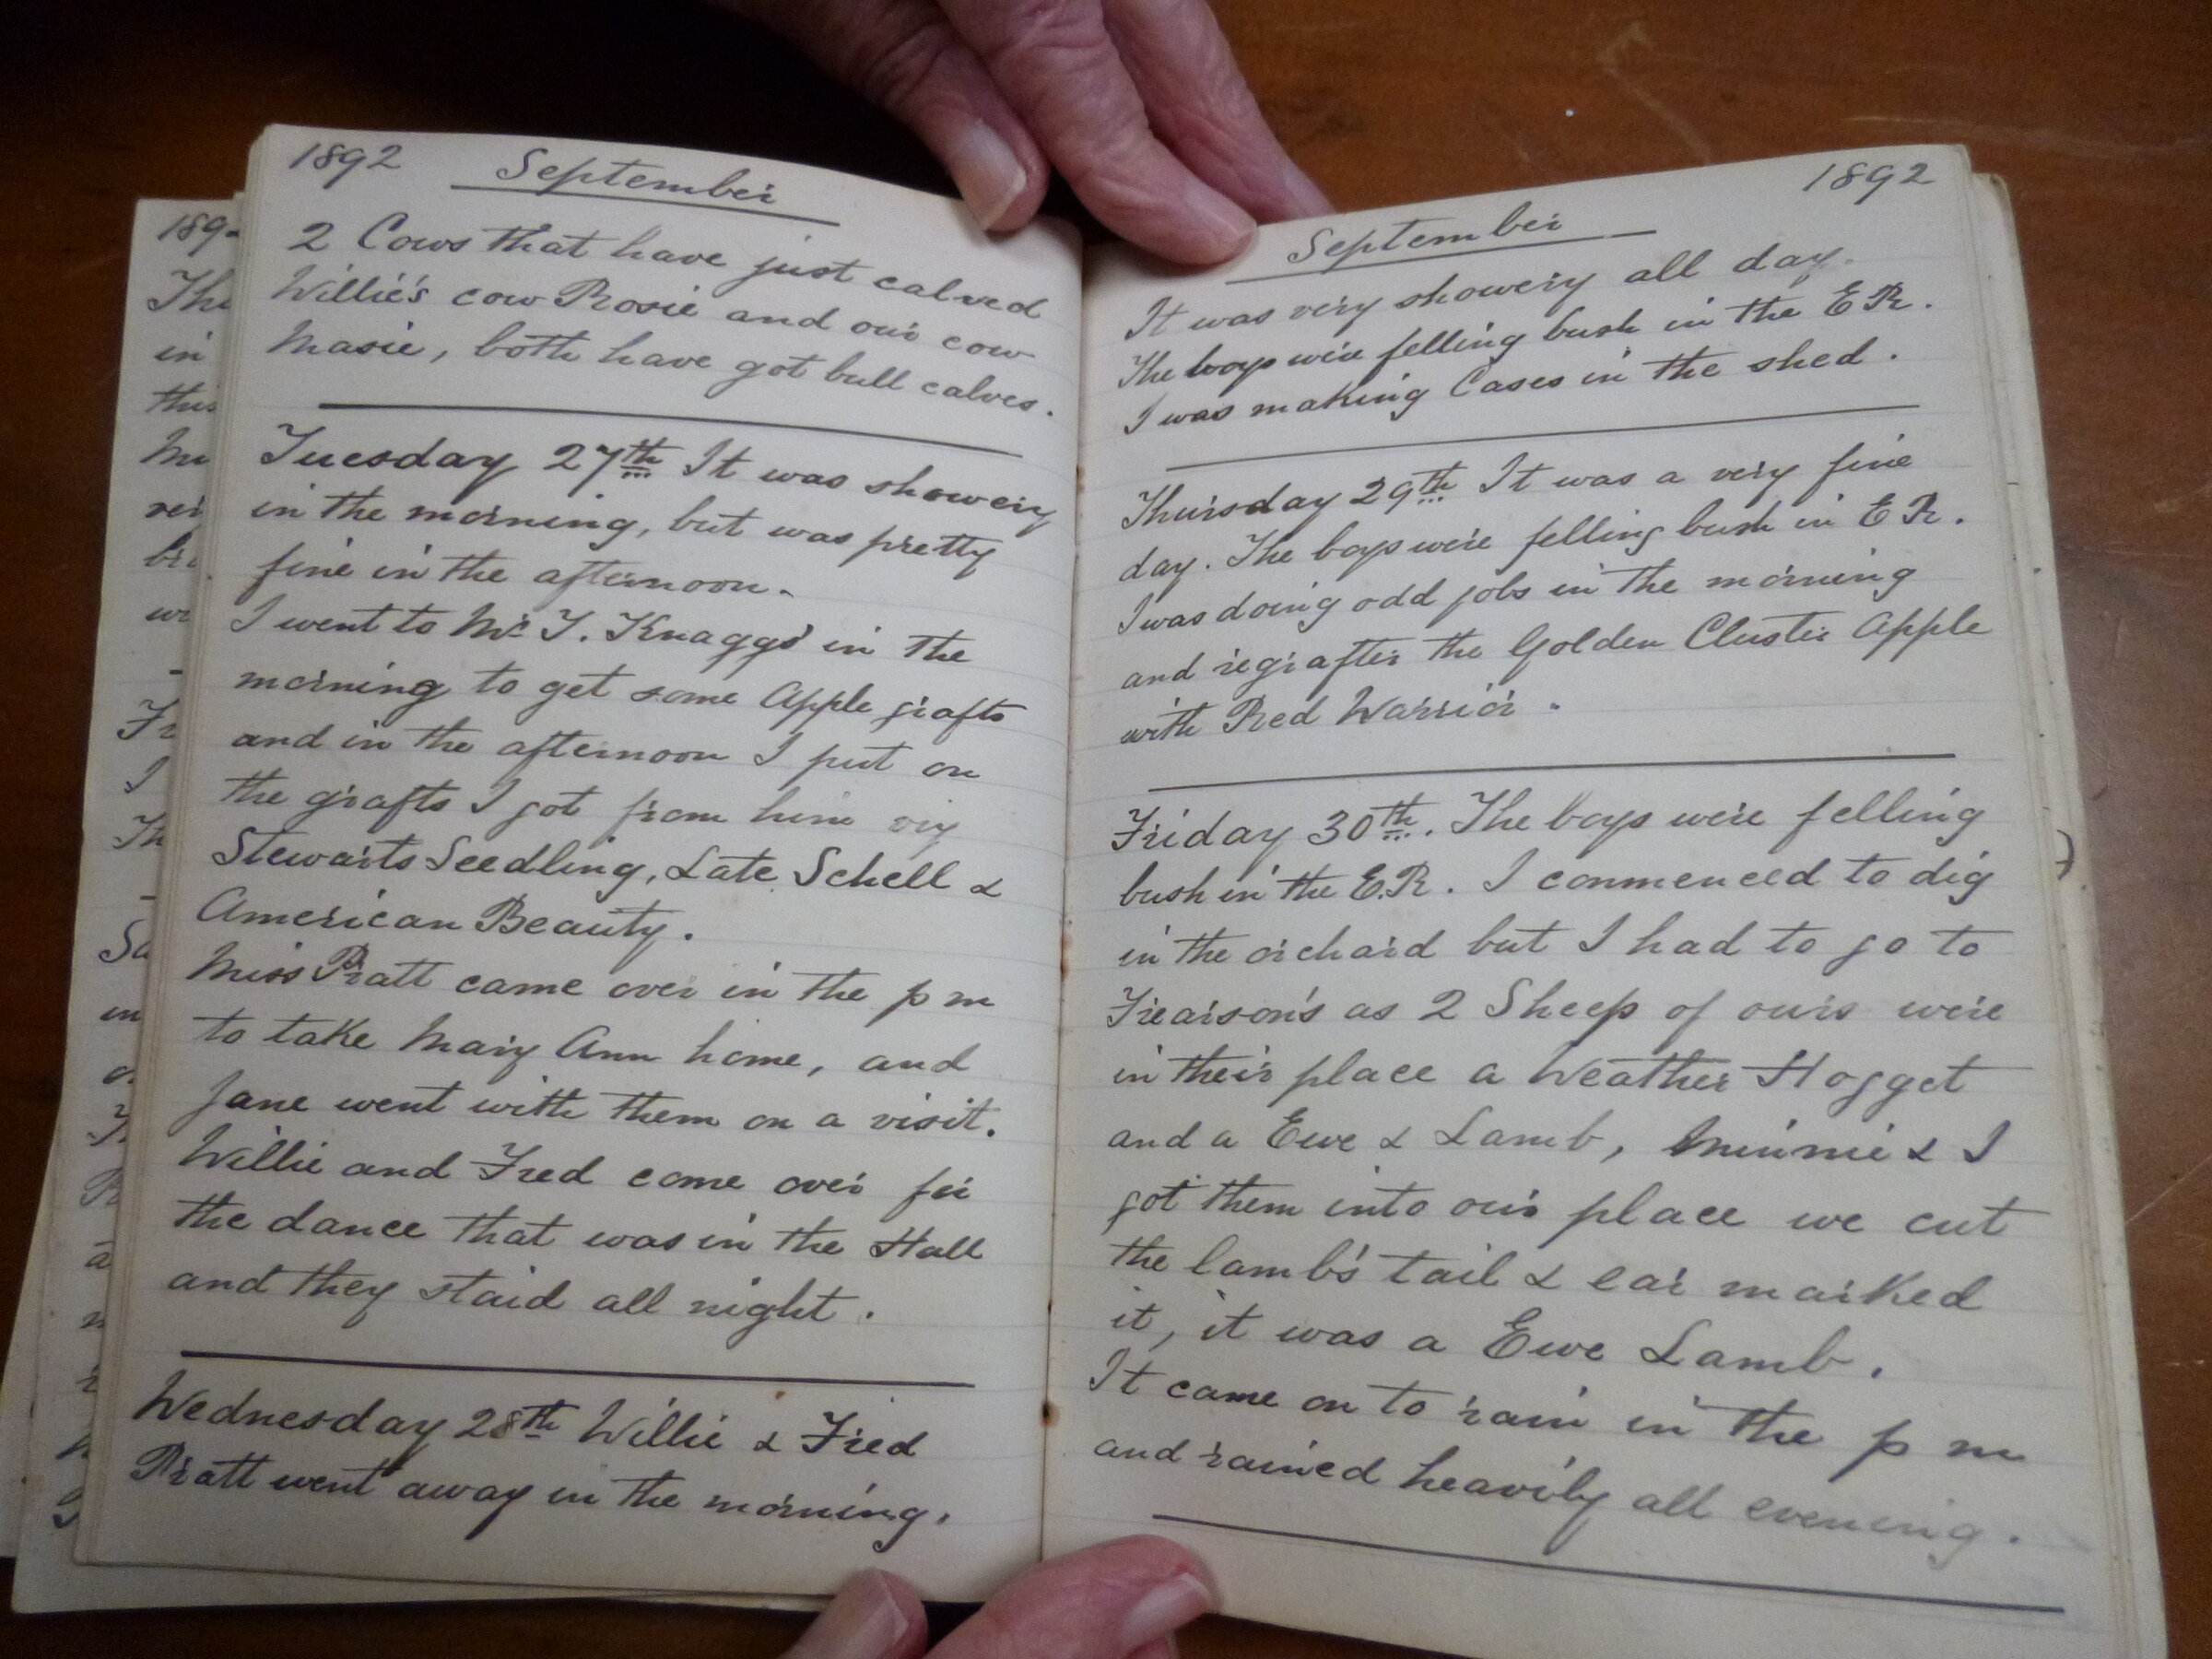 1892 September
2 Cows that have just calved
Willie's cow Rosie and our cow
Masie, both have got bull calves.
Tuesday 27th It was showery
in the morning, but was pretty
fine in the afternoon.
I went to Mr T. Knaggs' in the
morning to get some Apple grafts
and in the afternoon I put on
the grafts I got from him viz
Stewarts Seedling, Late Schell &
American Beauty.
Miss Pratt came over in the p m
to take Mary Ann home, and
Jane went with them on a visit.
Willie and Fred come over for
the dance that was in the Hall
and they staid all night.
Wednesday 28th Willie & Fred
Pratt went away in the morning.
September 1892
It was very showery all day.
The boys were felling bush in the E R.
I was making Cases in the shed.
Thursday 29th It was a very fine
day. The boys were felling bush in E R.
I was doing odd jobs in the morning
and regrafter the Golden Cluster Apple
with Red Warrior.
Friday 30th. The boys were felling
bush in the E.R. I commenced to dig
in the orchard but I had to go to
Frearson's as 2 Sheep of ours were
in their place a Weather Hogget
and a Ewe & Lamb, Minnie & I
got them into our place we cut
the lamb's tail & ear marked
it, it was a Ewe Lamb.
It came on to rain in the p m
and rained heavily all evening.